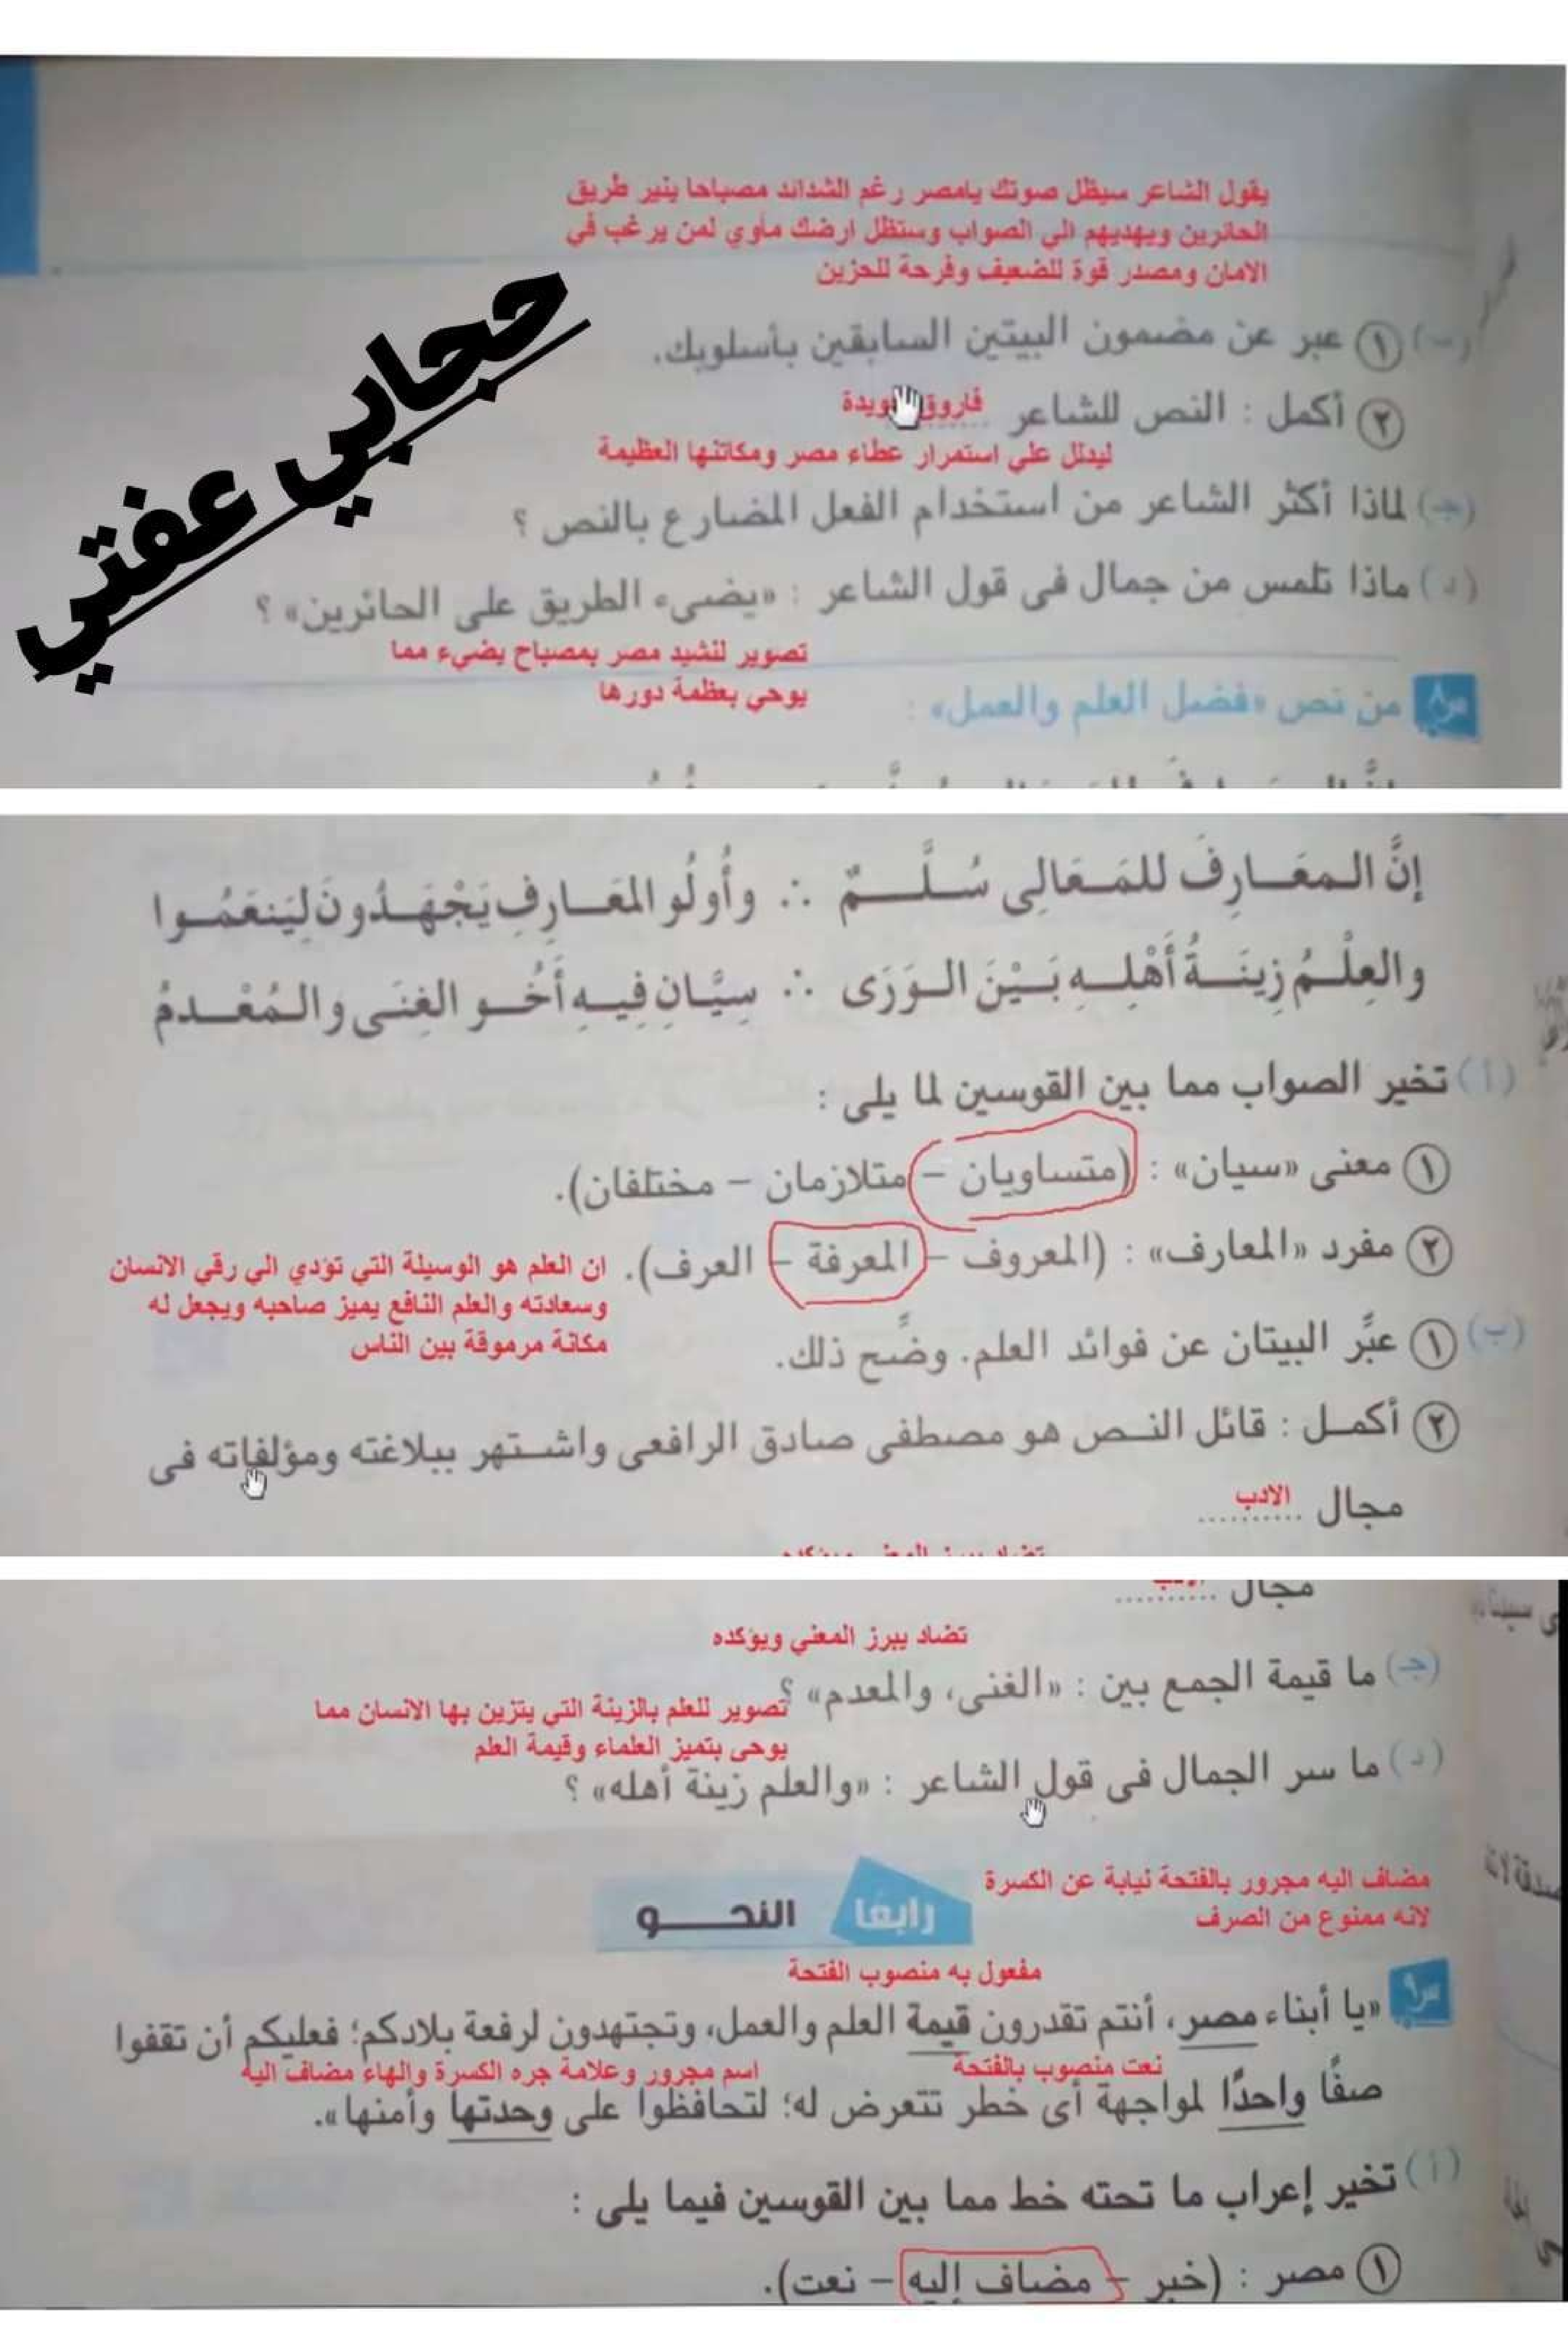 يقول الشاعر سيظل صوتك يامصر رغم الشدائد مصباحا ينير طريق
الحائرين ويهديهم الي الصواب وستظل ارضك مأوي لمن يرغب في
الامان ومصدر قوة للضعيف وفرحة للحزين
حجابي عفتي
(ب) ١ عبر عن مضمون البيتين السابقين بأسلوبك.
٢ أكمل : النص للشاعر فاروق جويدة
ليدلل علي استمرار عطاء مصر ومكانتها العظيمة
(جـ) لماذا أكثر الشاعر من استخدام الفعل المضارع بالنص ؟
(د) ماذا تلمس من جمال فى قول الشاعر : «يضىء الطريق على الحائرين» ؟
تصوير لنشيد مصر بمصباح يضيء مما
يوحي بعظمة دورها
س٨ من نص «فضل العلم والعمل» :
إنَّ المعَارِفَ للمَعَالِى سُلَّمٌ ∴ وأُولُو المَعَارِفِ يَجْهَدُونَ لِيَنعَمُوا
والعِلْمُ زِينَةُ أَهْلِهِ بَيْنَ الوَرَى ∴ سِيَّانِ فِيهِ أَخُو الغِنَى والمُعْدمُ
(أ) تخير الصواب مما بين القوسين لما يلى :
١ معنى «سيان» : (متساويان – متلازمان – مختلفان).
٢ مفرد «المعارف» : (المعروف – المعرفة – العرف).
ان العلم هو الوسيلة التي تؤدي الي رقي الانسان
وسعادته والعلم النافع يميز صاحبه ويجعل له
مكانة مرموقة بين الناس
(ب) ١ عبَّر البيتان عن فوائد العلم. وضَّح ذلك.
٢ أكمل : قائل النص هو مصطفى صادق الرافعى واشتهر ببلاغته ومؤلفاته فى
مجال الادب
مجال ..........
تضاد يبرز المعني ويؤكده
(جـ) ما قيمة الجمع بين : «الغنى، والمعدم» ؟
تصوير للعلم بالزينة التي يتزين بها الانسان مما
يوحى بتميز العلماء وقيمة العلم
(د) ما سر الجمال فى قول الشاعر : «والعلم زينة أهله» ؟
مضاف اليه مجرور بالفتحة نيابة عن الكسرة
لانه ممنوع من الصرف
رابعًا النحو
مفعول به منصوب الفتحة
س٩ «يا أبناء مصر، أنتم تقدرون قيمة العلم والعمل، وتجتهدون لرفعة بلادكم؛ فعليكم أن تقفوا
نعت منصوب بالفتحة اسم مجرور وعلامة جره الكسرة والهاء مضاف اليه
صفًّا واحدًا لمواجهة أى خطر تتعرض له؛ لتحافظوا على وحدتها وأمنها».
(أ) تخير إعراب ما تحته خط مما بين القوسين فيما يلى :
١ مصر : (خبر – مضاف إليه – نعت).